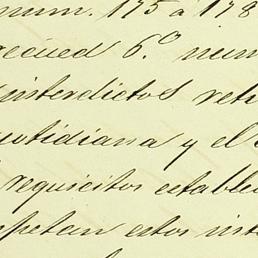 num. 175 a 178
6.º num
interdictos
cotidiana y el
requicitos estable
petan estos inte